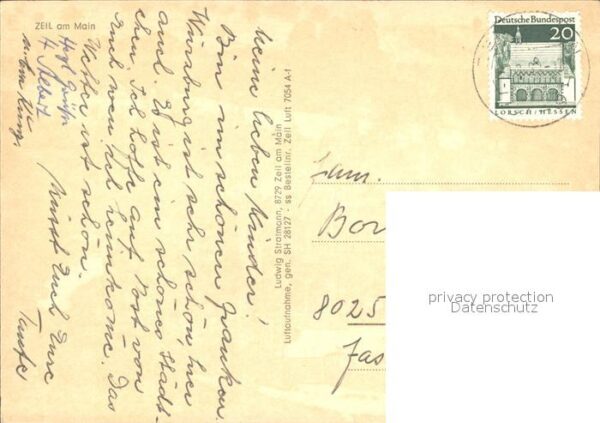 ZEIL am Main
Meine lieben Kinder!
Bin im schönen Franken.
Würzburg ist sehr schön, hier
auch. Es ist ein schönes Städt-
chen. Ich hoffe auf Post von
Euch wenn ich heimkomme. Das
Wetter ist schön.
Küsst Euch Eure
Tante
Ludwig Stratmann, 8729 Zeil am Main
Luftaufnahme, gen. SH 28127 - ss Bestellnr. Zeil Luft 7054 A-f
Deutsche Bundespost
20
LORSCH/HESSEN
Fam.
Bor
8025
privacy protection
Datenschutz